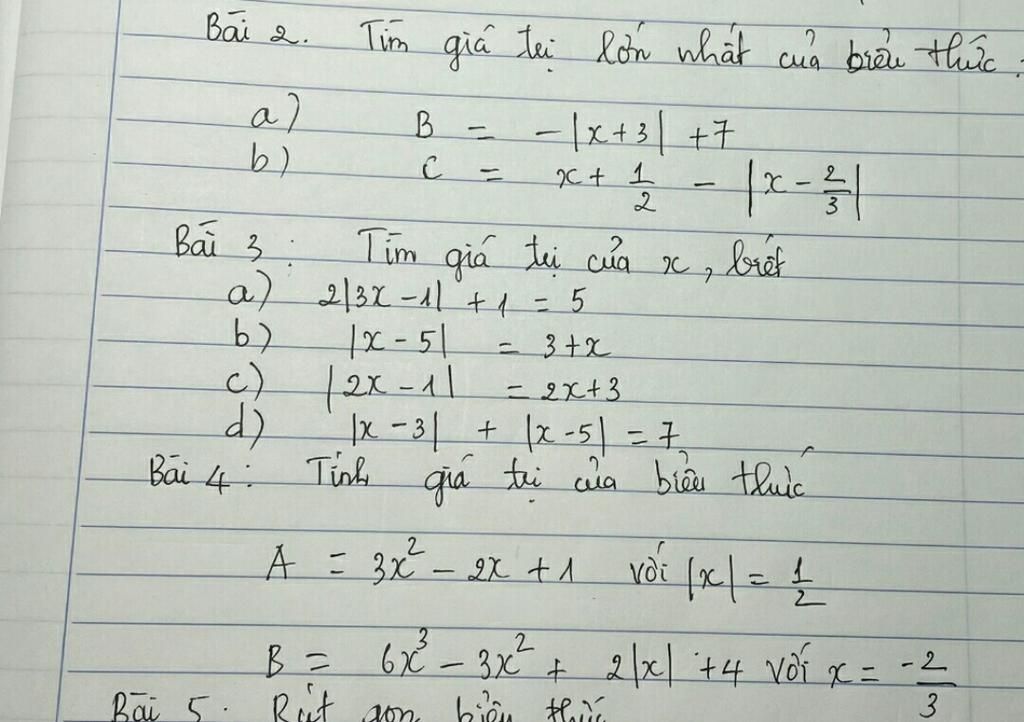 Bài 2. Tìm giá trị lớn nhất của biểu thức:
a) B = -|x+3| +7
b) C = x + 1/2 - |x - 2/3|
Bài 3: Tìm giá trị của x, biết
a) 2|3x -1| + 1 = 5
b) |x - 5| = 3+x
c) |2x - 1| = 2x+3
d) |x - 3| + |x -5| = 7
Bài 4: Tính giá trị của biểu thức
A = 3x² - 2x + 1 với |x| = 1/2
B = 6x³ - 3x² + 2|x| + 4 với x = -2/3
Bài 5. Rút gọn biểu thức